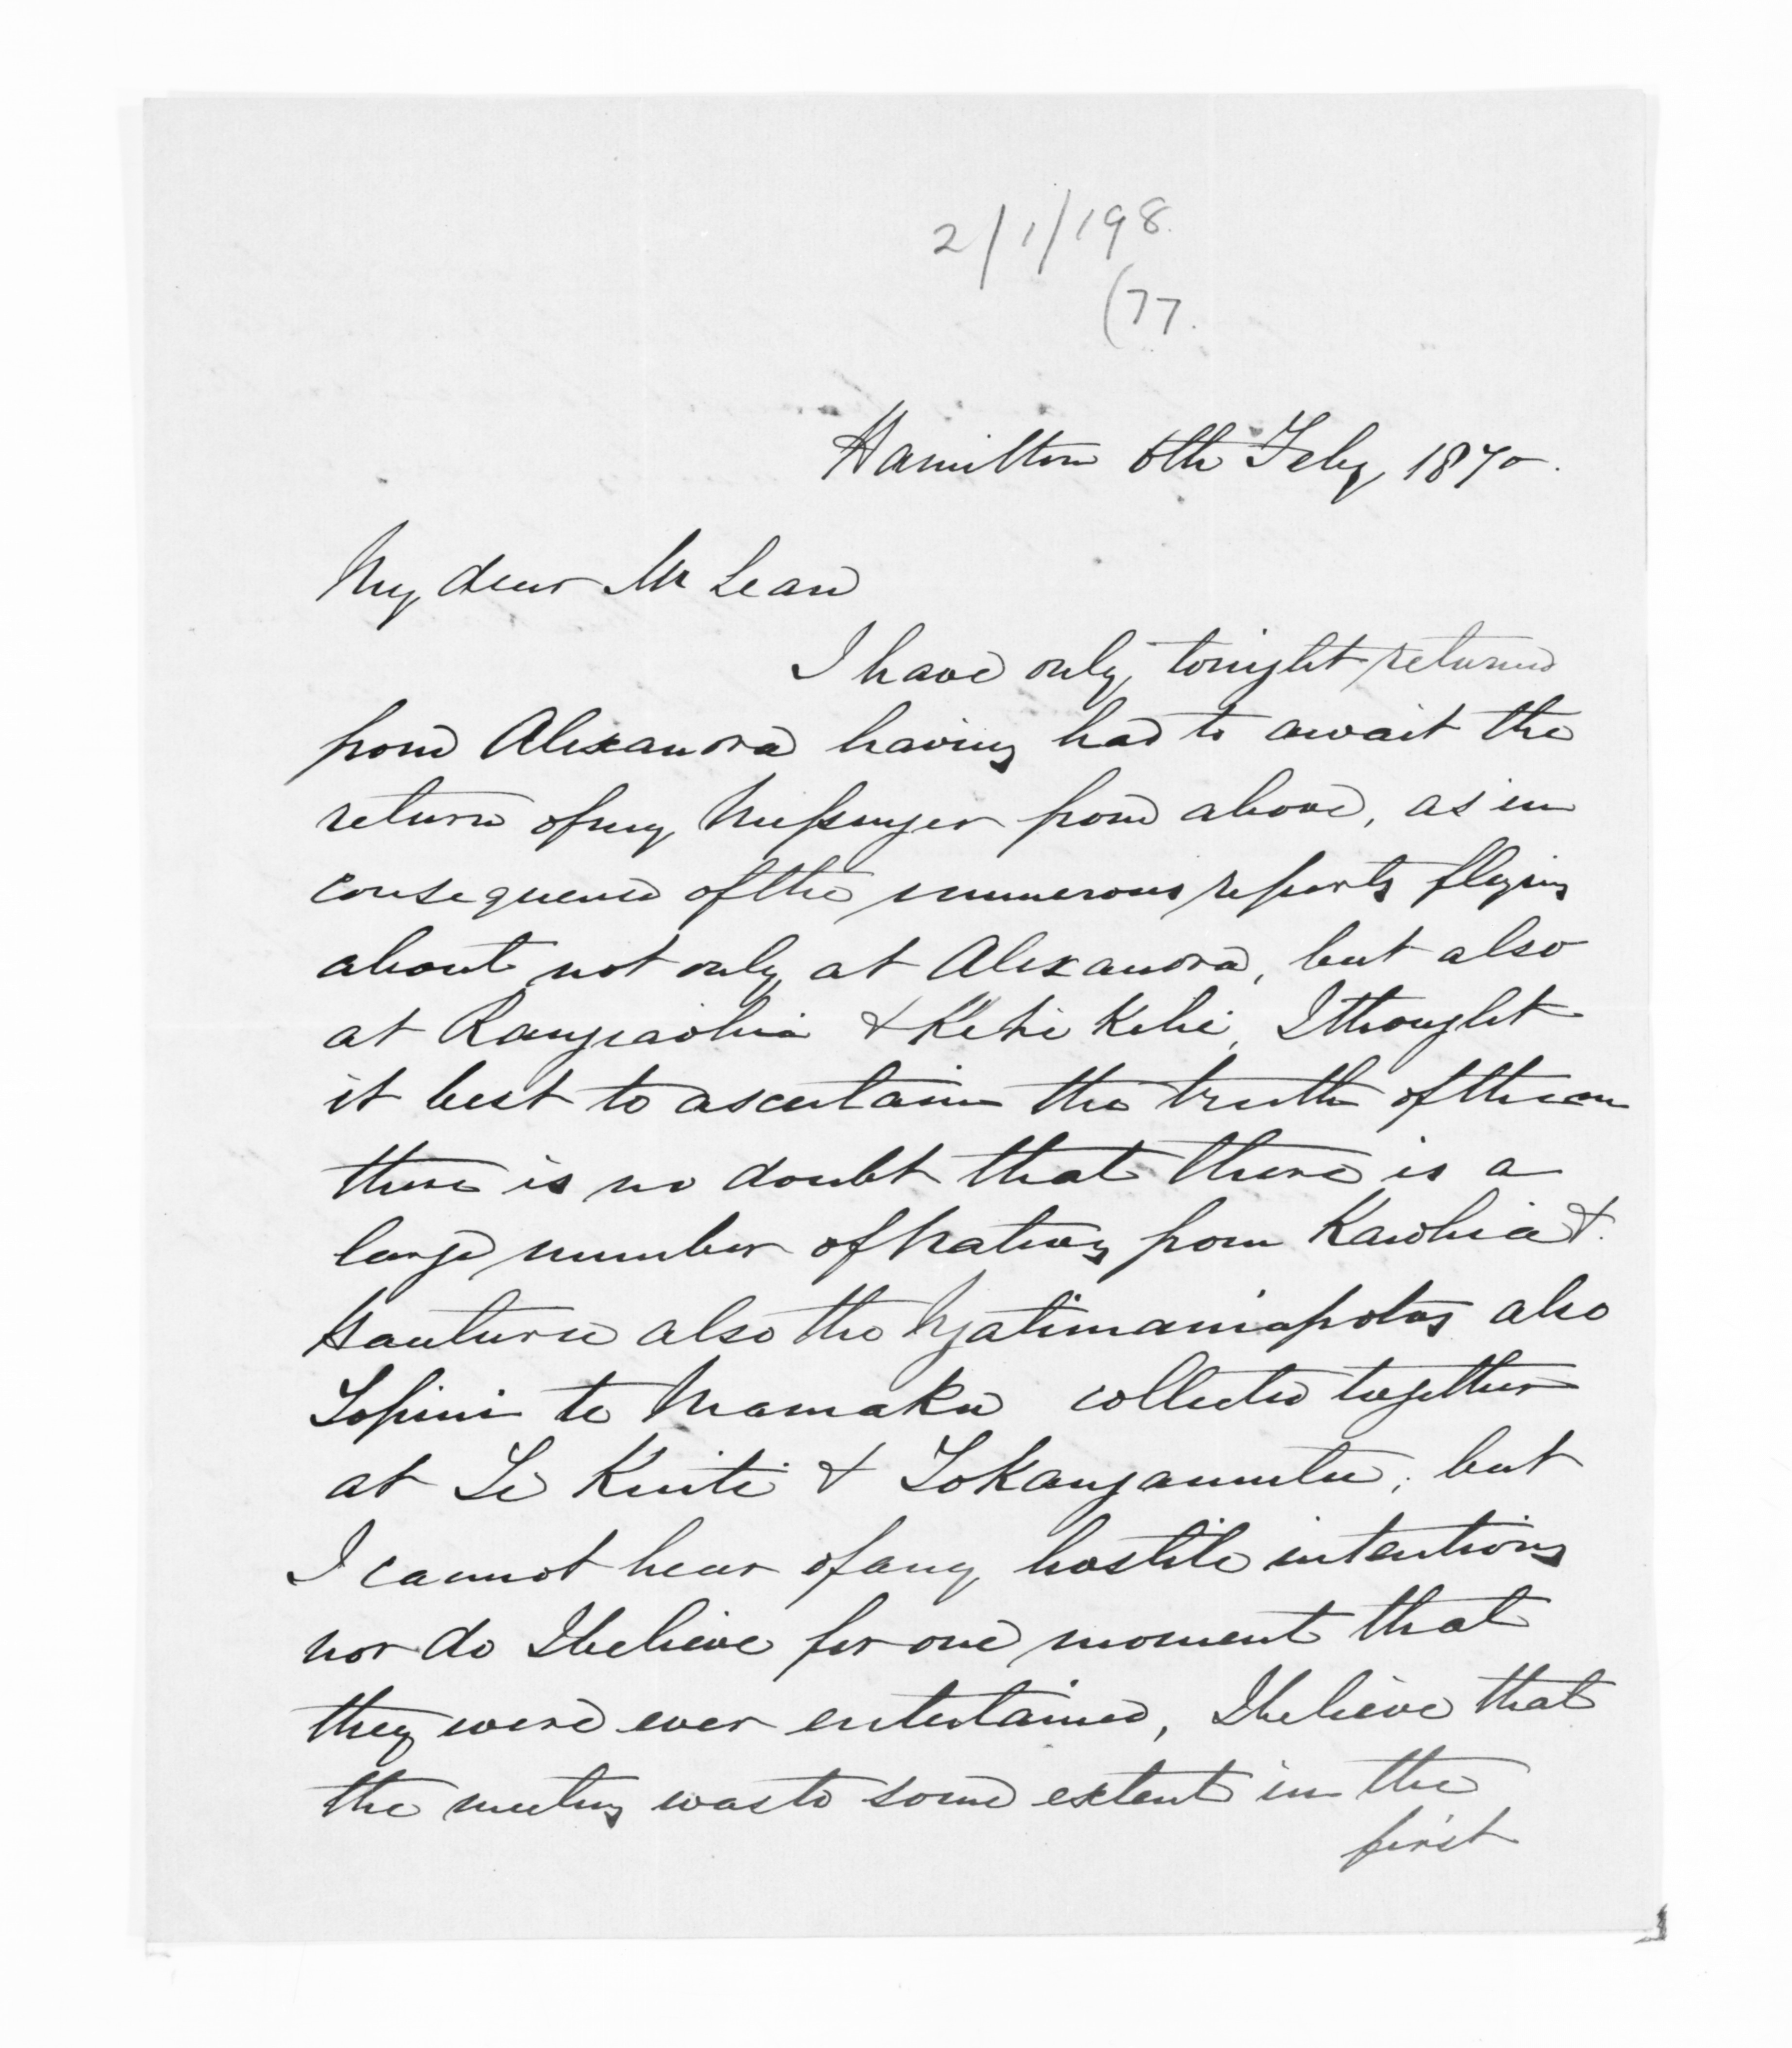 2/1/198.
(77.
Hamilton 6th Feby 1870.
My dear McLean
I have only tonight returned
from Alexandra having had to await the
return of my Messenger from above, as in
consequence of the numerous reports flying
about not only at Alexandra, but also
at Rangiaohia & Kihi Kihi, I thought
it best to ascertain the truth of them
there is no doubt that there is a
large number of Natives from Kawhia &
Hauturu also the Ngatimaniapotos also
Topini te Mamaku collected together
at Te Kuiti & Tokangamutu; but
I cannot hear of any hostile intentions
nor do I believe for one moment that
they were ever entertained, I believe that
the meeting was to some extent in the
first